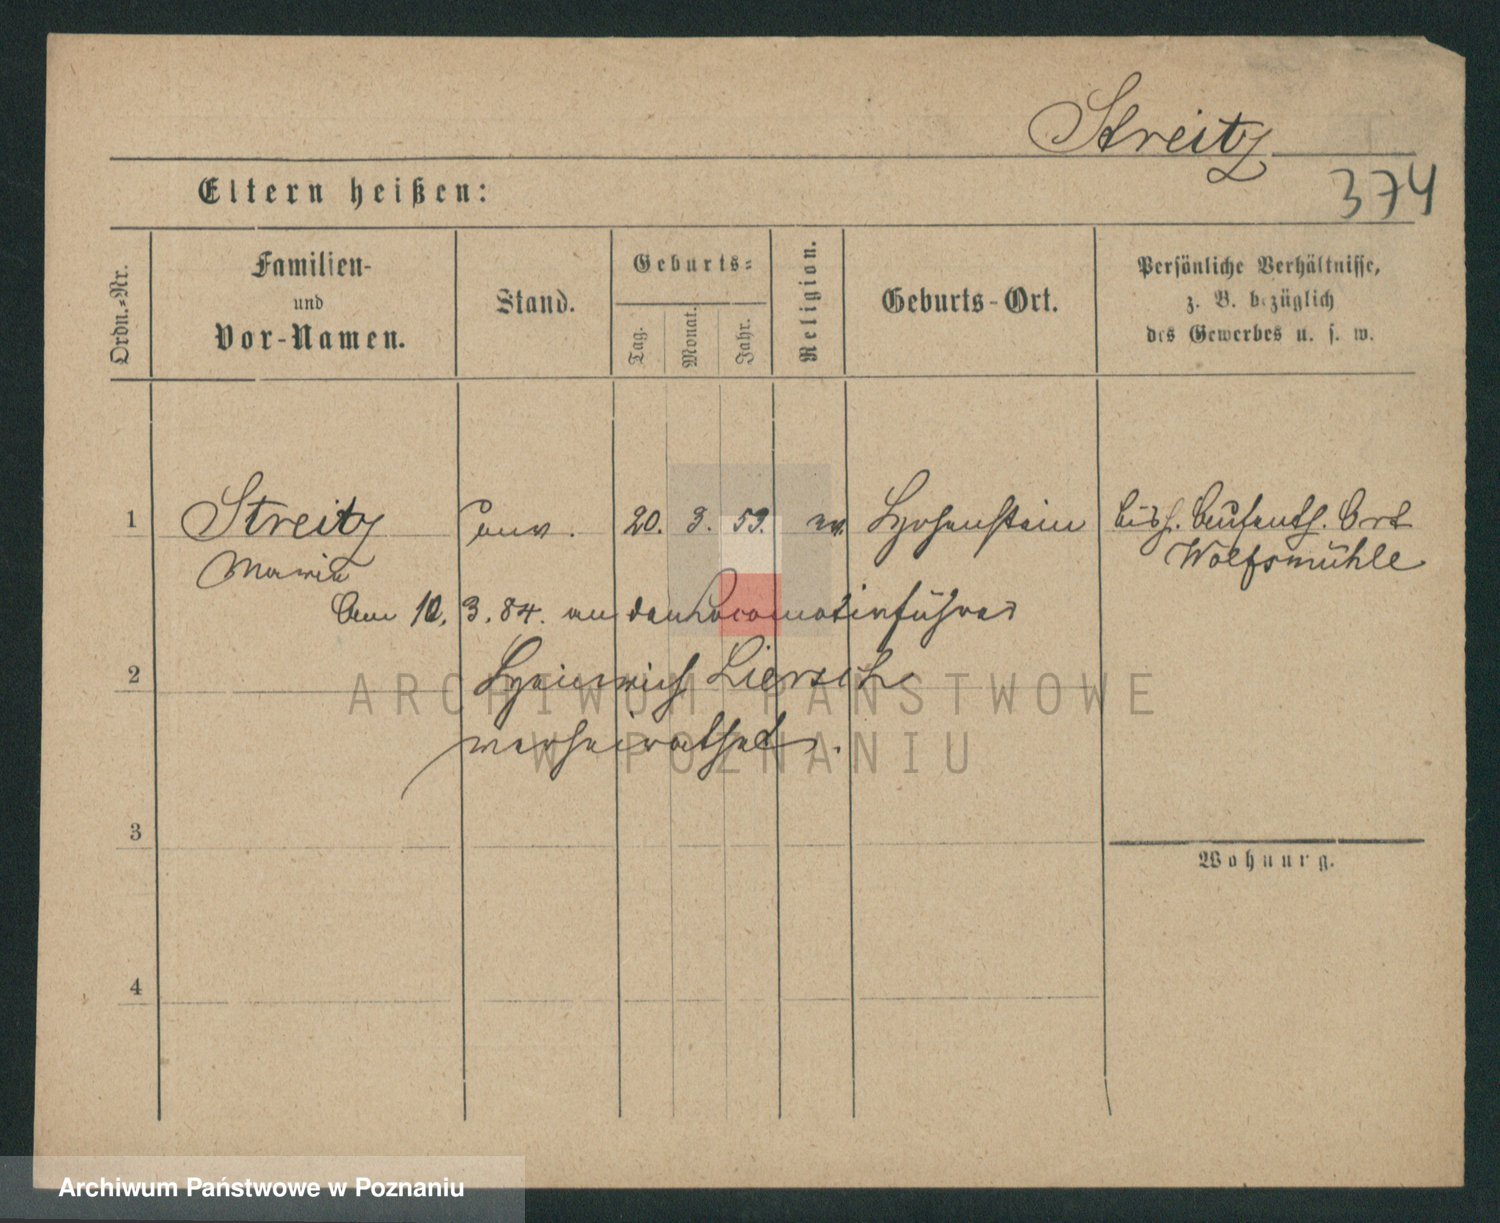 Streitz
374
Eltern heißen:
Ordn.-Nr.
Familien-
und
Vor-Namen.
Stand.
Geburts-
Tag.
Monat.
Jahr.
Religion.
Geburts-Ort.
Persönliche Verhältnisse,
z. B. bezüglich
des Gewerbes u. s. w.
1 Streitz unv. 20. 3. 59. ev. Hohenstein bish. Aufenth. Ort
Maria Wolfsmühle
Am 10. 3. 84. an den Locomotivführer
2 Heinrich Liersch
verheirathet.
3
Wohnung.
4
ARCHIWUM PAŃSTWOWE
W POZNANIU
Archiwum Państwowe w Poznaniu